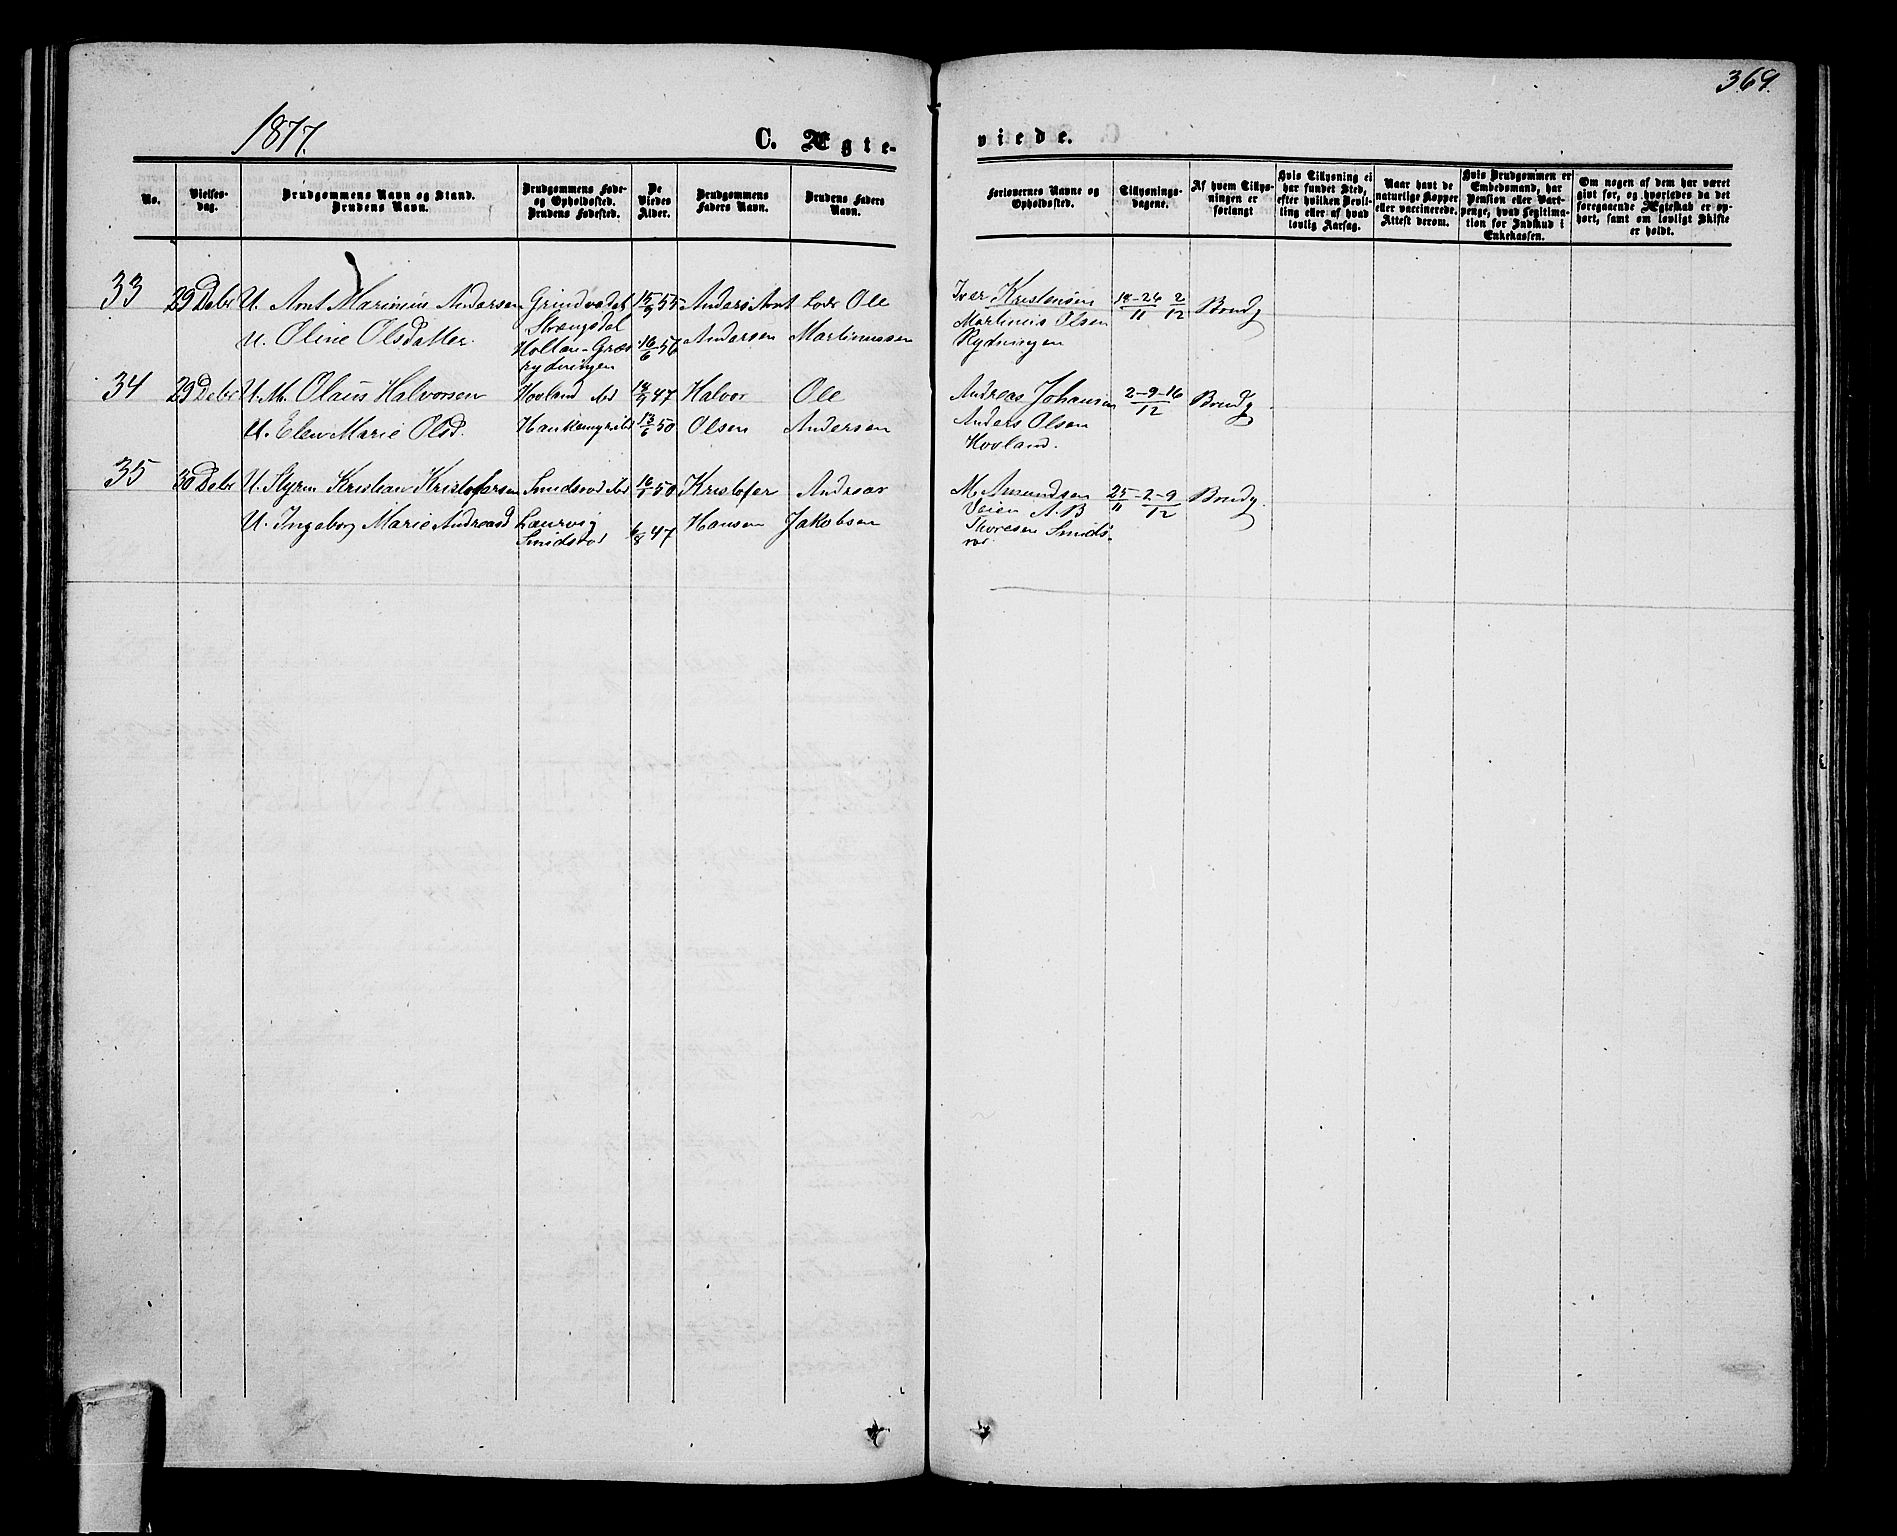 369.
1877.
C. Ægte-
viede.
No.
Vielses-
dag.
Brudgommens Navn og Stand.
Brudens Navn.
Brudgommens Føde-
og Opholdssted.
Brudens Fødested.
De
Viedes
Alder.
Brudgommens
Faders Navn.
Brudens Faders
Navn.
Forlovernes Navne og
Opholdssted.
Tillysnings-
dagene.
Af hvem Tillys-
ningen er
forlangt
Hvis Tillysning ei
har fundet Sted,
efter hvilken Bevil-
ling eller af hvad
lovlig Aarsag.
Naar havt de
naturlige Kopper
eller vaccinerede.
Attest derom.
Hvis Brudgommen er
Embedsmand, har
Pension eller Vart-
penge, hvad Legitima-
tion for Indskud i
Enkekassen.
Om nogen af dem har været
gift før, og hvorledes da det
foregaaende Ægteskab er op-
hørt, samt om lovligt Skifte
er holdt.
33
29 Debr
U. Arnt Marinius Andersen
u. Oline Olsdatter.
Grindvedet
Holtan-Græs
rydningen
15/9 55
16/6 56
Anders Arnt
Andersen
Ole
Martinussen
Iver Kristensen
Martinius Olsen
Rydningen
18-26/11 2/12
Brudg
34
29 Debr
U. M. Olaus Halvorsen
U. Elen Marie Olsd.
Hovland ibd
18/9 47
13/6 50
Halvor
Olsen
Ole
Andersen
Andreas Johansen
Anders Olsen
Hovland.
2-9-16/12
Brudg
35
30 Debr
U. Styrm Kristian Kristofersen
U. Ingeborg Marie Andreasd
Smidsrød ibd
Laurvig
Smidsrød
16/1 50
6/8 47
Kristofer
Hansen
Andreas
Jakobsen
M. Amundsen
Veien A. B
Thoresen Smids-
rød.
25/11-2-9/12
Brudg.